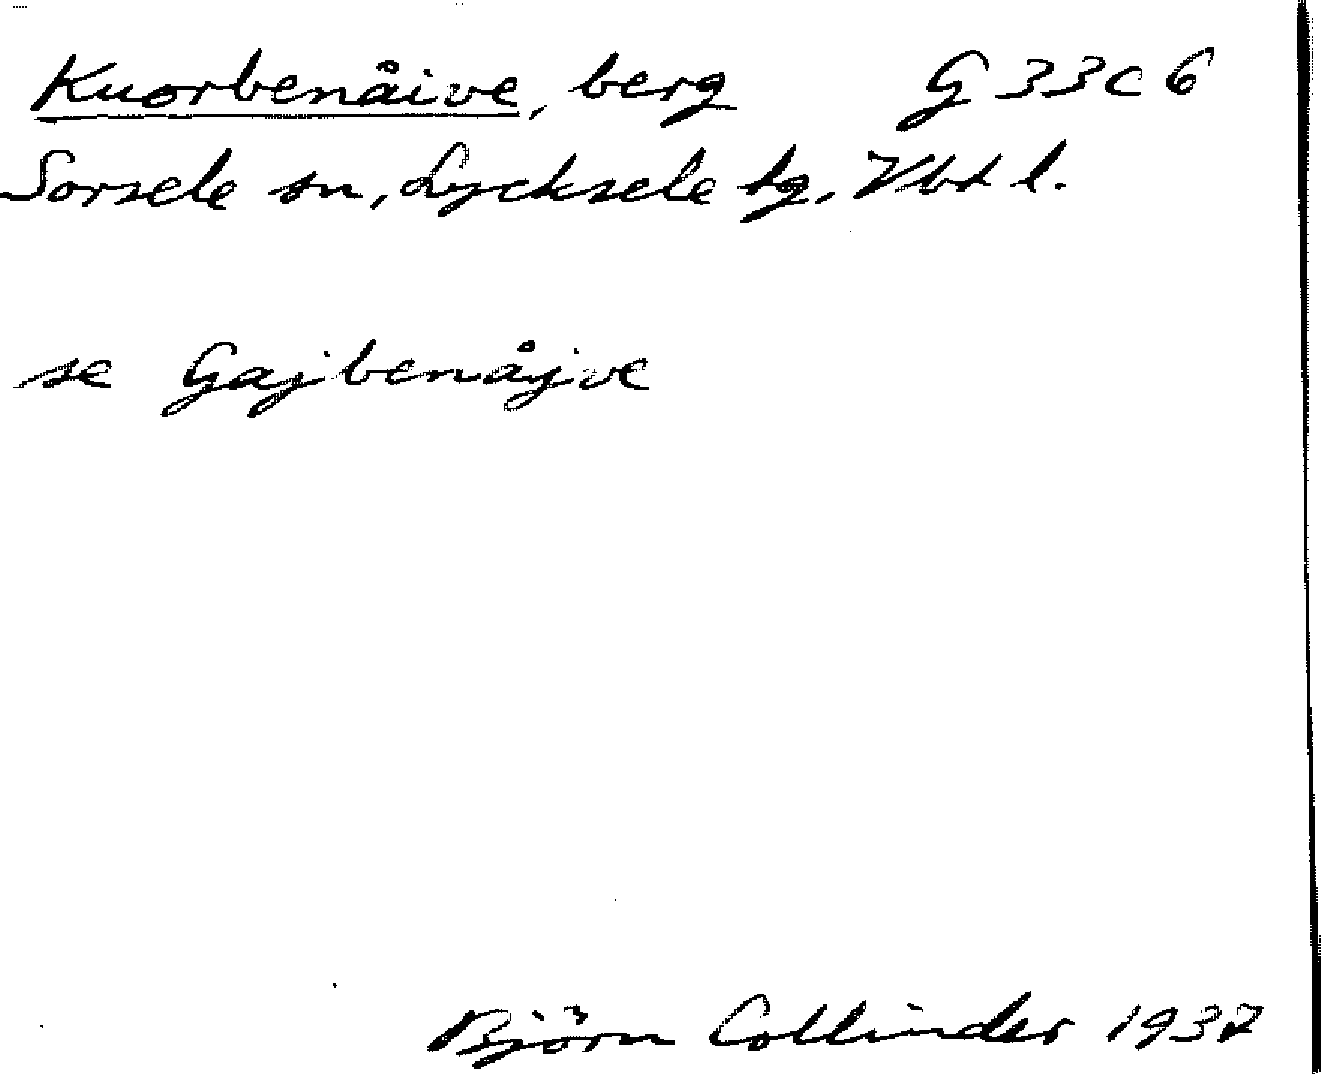 Kuorbenåive, berg G 33 C 6
Sorsele sn, Lycksele tg, Vbt l.
se Gajbenåjve
Björn Collinder 1937